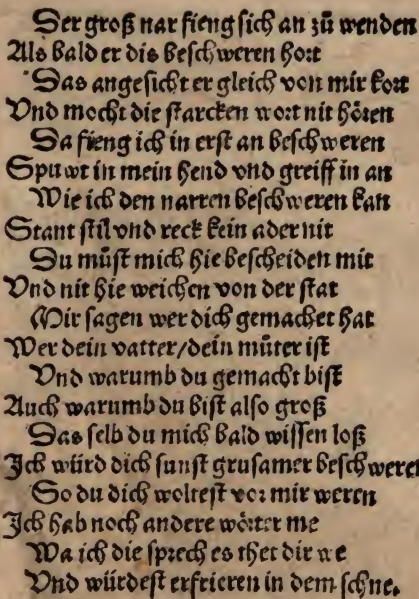 Der groß nar fieng sich an zů wenden
Als bald er dis beschweren hort
Das angesicht er gleich von mir kort
Vnd mocht die starcken wort nit hören
Da fieng ich in erst an beschweren
Spuwt in mein hend vnd greiff in an
Wie ich den narren beschweren kan
Stant stil vnd reck kein ader nit
Du můst mich hie bescheiden mit
Vnd nit hie weichen von der stat
Mir sagen wer dich gemachet hat
Wer dein vatter/dein můter ist
Vnd warumb du gemacht bist
Auch warumb du bist also groß
Das selb du mich bald wissen loß
Ich würd dich sunst grusamer beschweren
So du dich woltest vor mir weren
Ich hab noch andere wörter me
Wa ich die sprech es thet dir we
Vnd würdest erfrieren in dem schne.